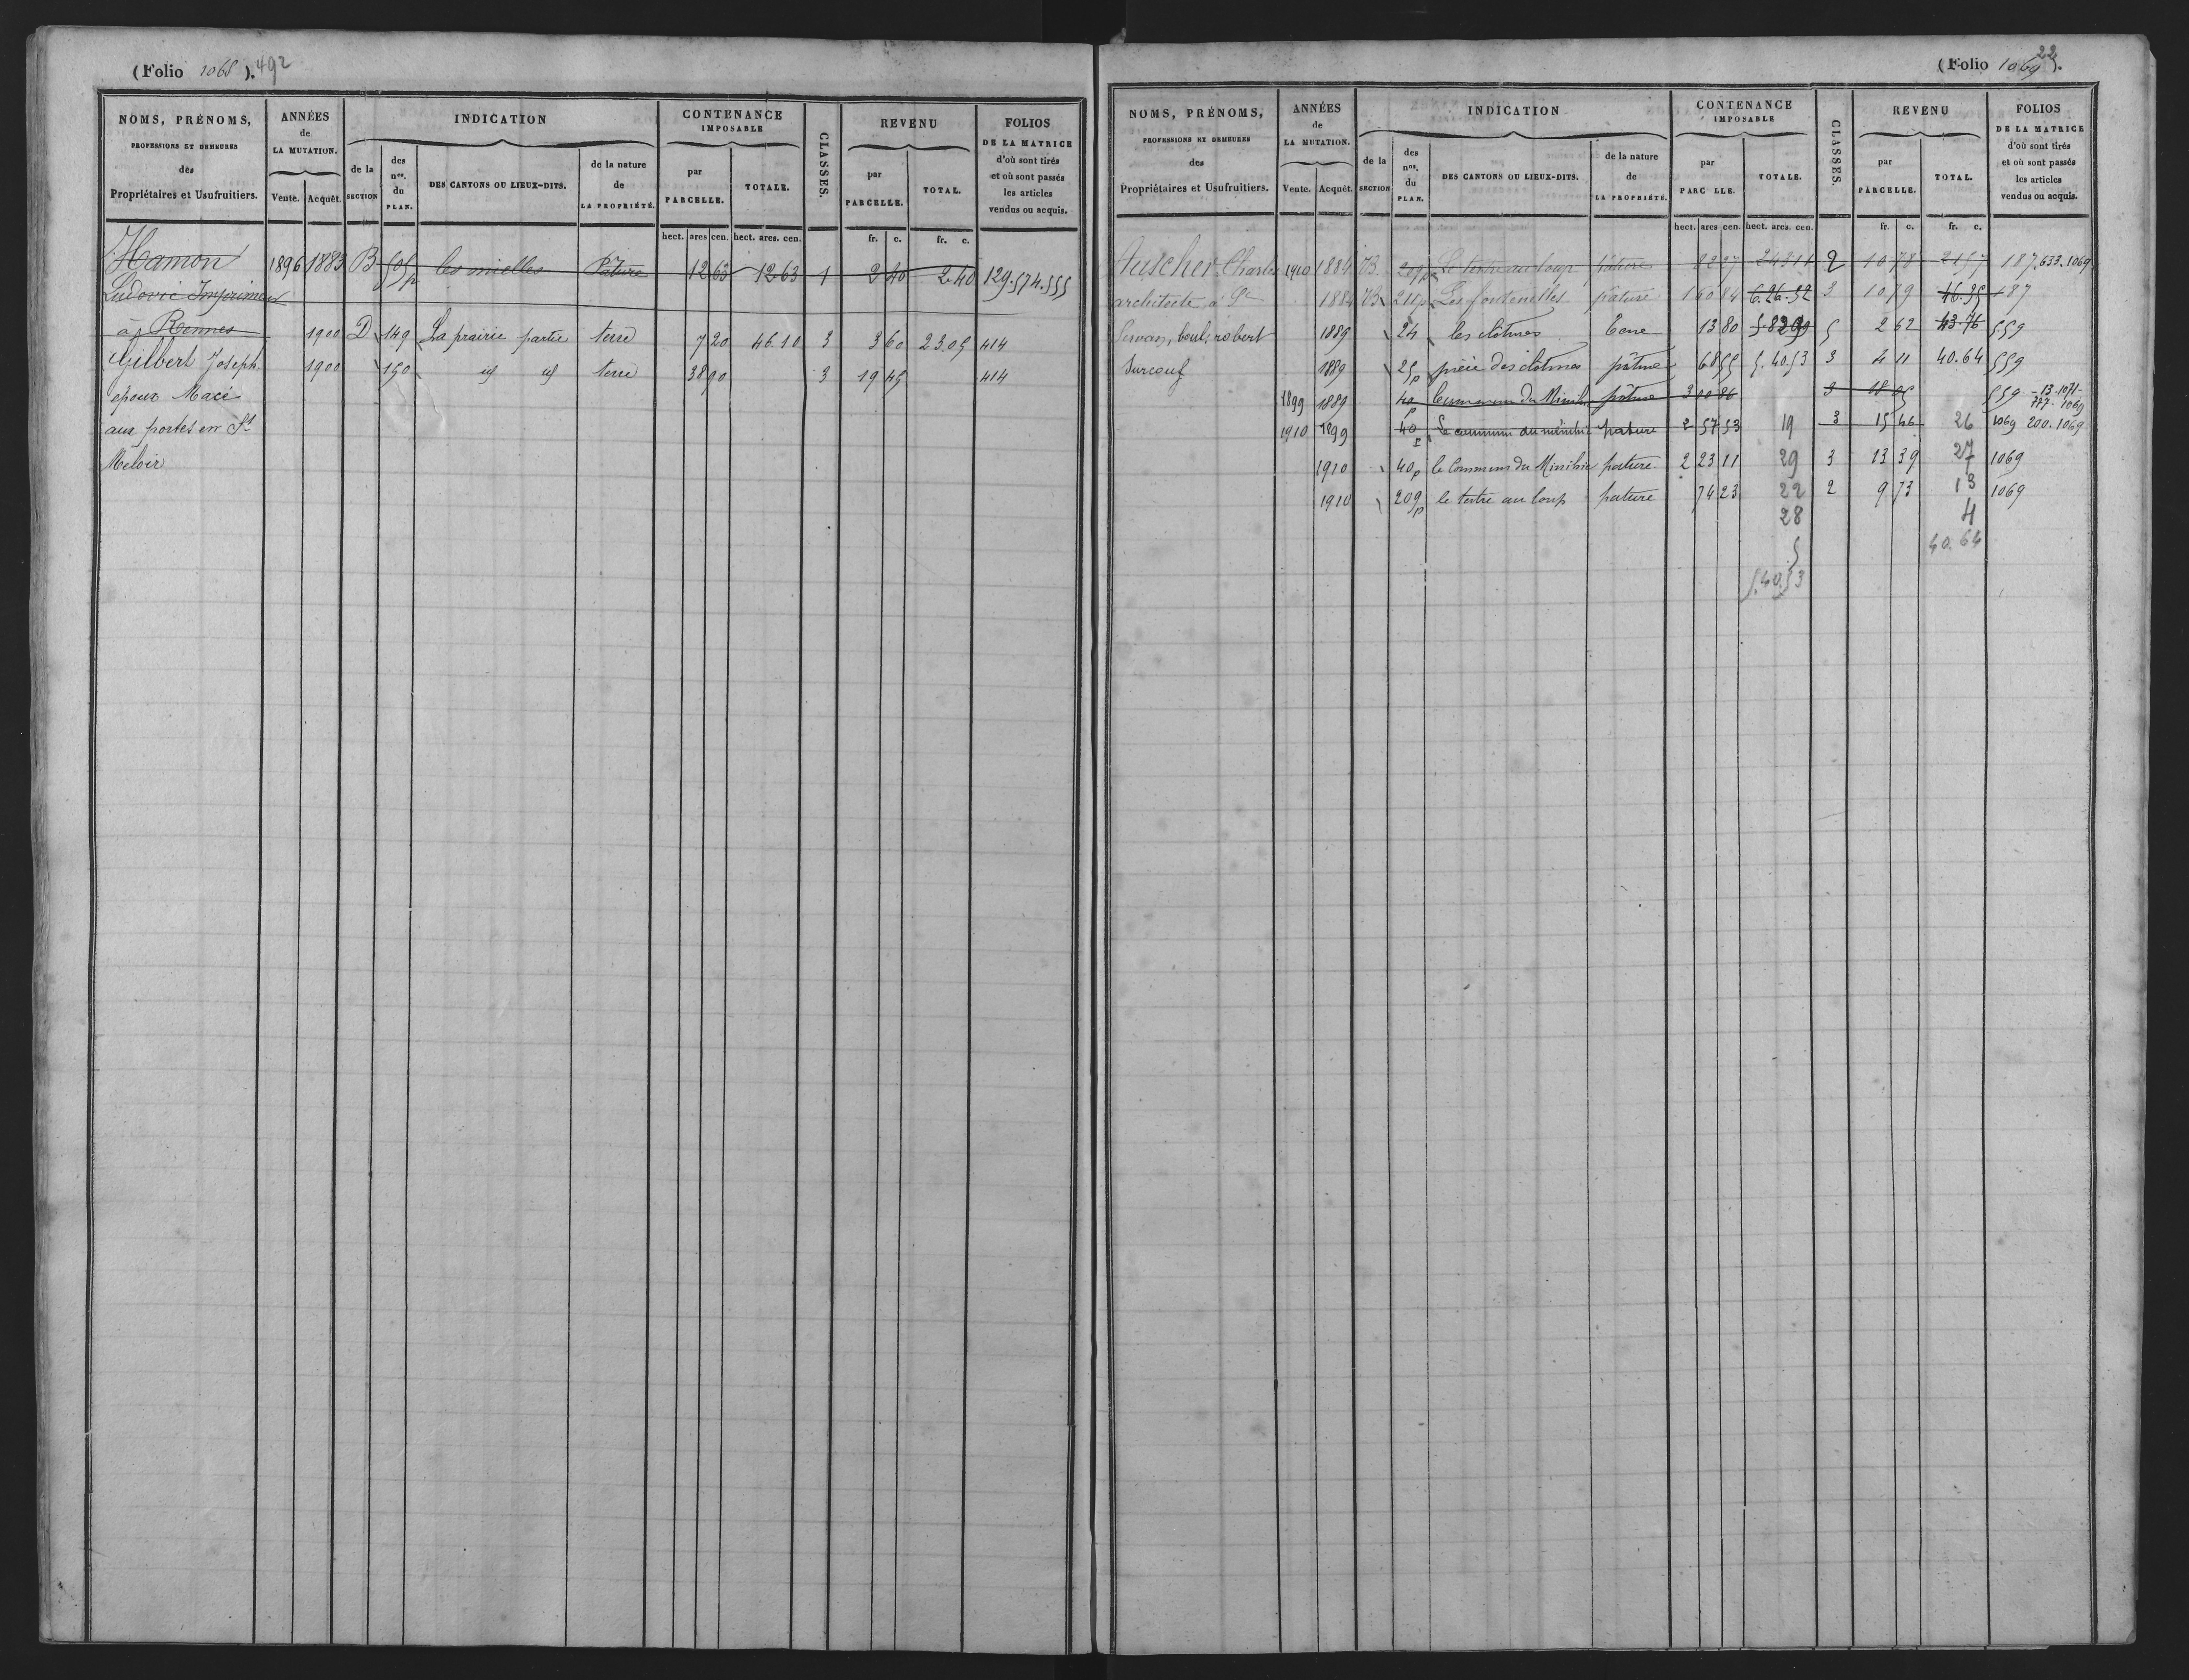 (Folio 1068). 492
NOMS, PRÉNOMS, PROFESSIONS ET DEMEURES des Propriétaires et Usufruitiers.
ANNÉES de LA MUTATION. Vente. Acquêt.
INDICATION de la SECTION des nos. du PLAN. DES CANTONS OU LIEUX-DITS. de la nature de LA PROPRIÉTÉ.
CONTENANCE IMPOSABLE par PARCELLE. TOTALE.
CLASSES.
REVENU par PARCELLE. TOTAL.
FOLIOS DE LA MATRICE d'où sont tirés et où sont passés les articles vendus ou acquis.
hect. ares cen. hect. ares. cen. fr. c. fr. c.
Hamon 1896 1883 B 505p les mielles Pature 12 63 12 63 1 2 40 2 40 129.574.555
Ludovic Imprimeur
à Rennes 1900 D 149 La prairie partie terre 7 20 46.10 3 3 60 23.05 414
Gilbert Joseph 1900 150 id id terre 38 90 3 19 45 414
époux Macé
aux portes en St
Meloir
(Folio 1069). 22
NOMS, PRÉNOMS, PROFESSIONS ET DEMEURES des Propriétaires et Usufruitiers.
ANNÉES de LA MUTATION. Vente. Acquêt.
INDICATION de la SECTION des nos. du PLAN. DES CANTONS OU LIEUX-DITS. de la nature de LA PROPRIÉTÉ.
CONTENANCE IMPOSABLE par PARC LLE. TOTALE.
CLASSES.
REVENU par PARCELLE. TOTAL.
FOLIOS DE LA MATRICE d'où sont tirés et où sont passés les articles vendus ou acquis.
hect. ares cen. hect. ares. cen. fr. c. fr. c.
Auscher Charles 1910 1884 B 209p Le tertre au loup pature 82 27 2 43 11 2 10 78 21 57 187.633.1069
architecte à St 1884 B 211p Les fontenelles pature 1 60 84 6.26.52 3 10 79 46.35 187
Servan, boul. robert 1889 24 les clôtures terre 13 80 5 82 99 5 2 62 43.76 559
Surcouf 1889 25p prée des clôtures pâture 68 55 5.40.53 3 4 11 40.64 559
1899 1889 40p Commun du Minihic pâture 3 00 86 3 18 05 559 - 13-1071-777-1069
1910 1899 40p Le commun du minihic pature 2 57 53 19 3 15 46 26 1069 200.1069
1910 40p le Commun du Minihic pature 2 23 11 29 3 13 39 27 1069
1910 209p le tertre au loup pature 74 23 22 2 9 73 13 1069
28 4
5 40.64
5.40.53